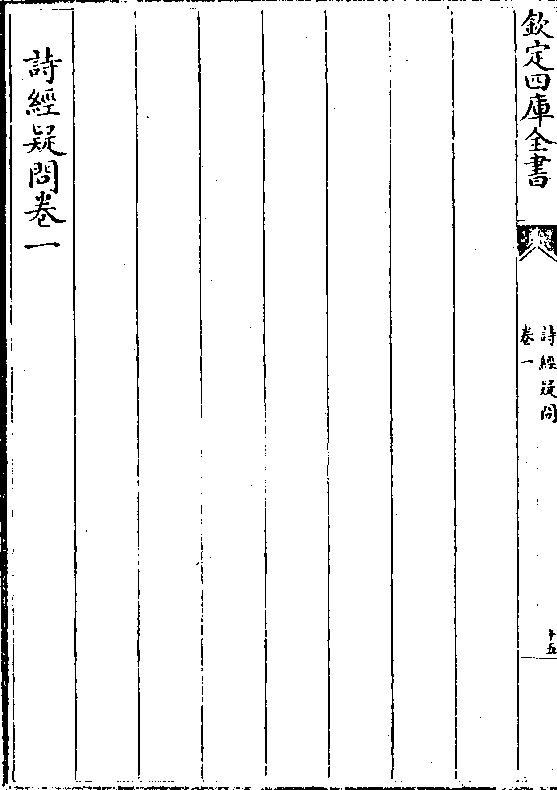 欽定四庫全書
詩經疑問
卷一
十五
詩經疑問卷一